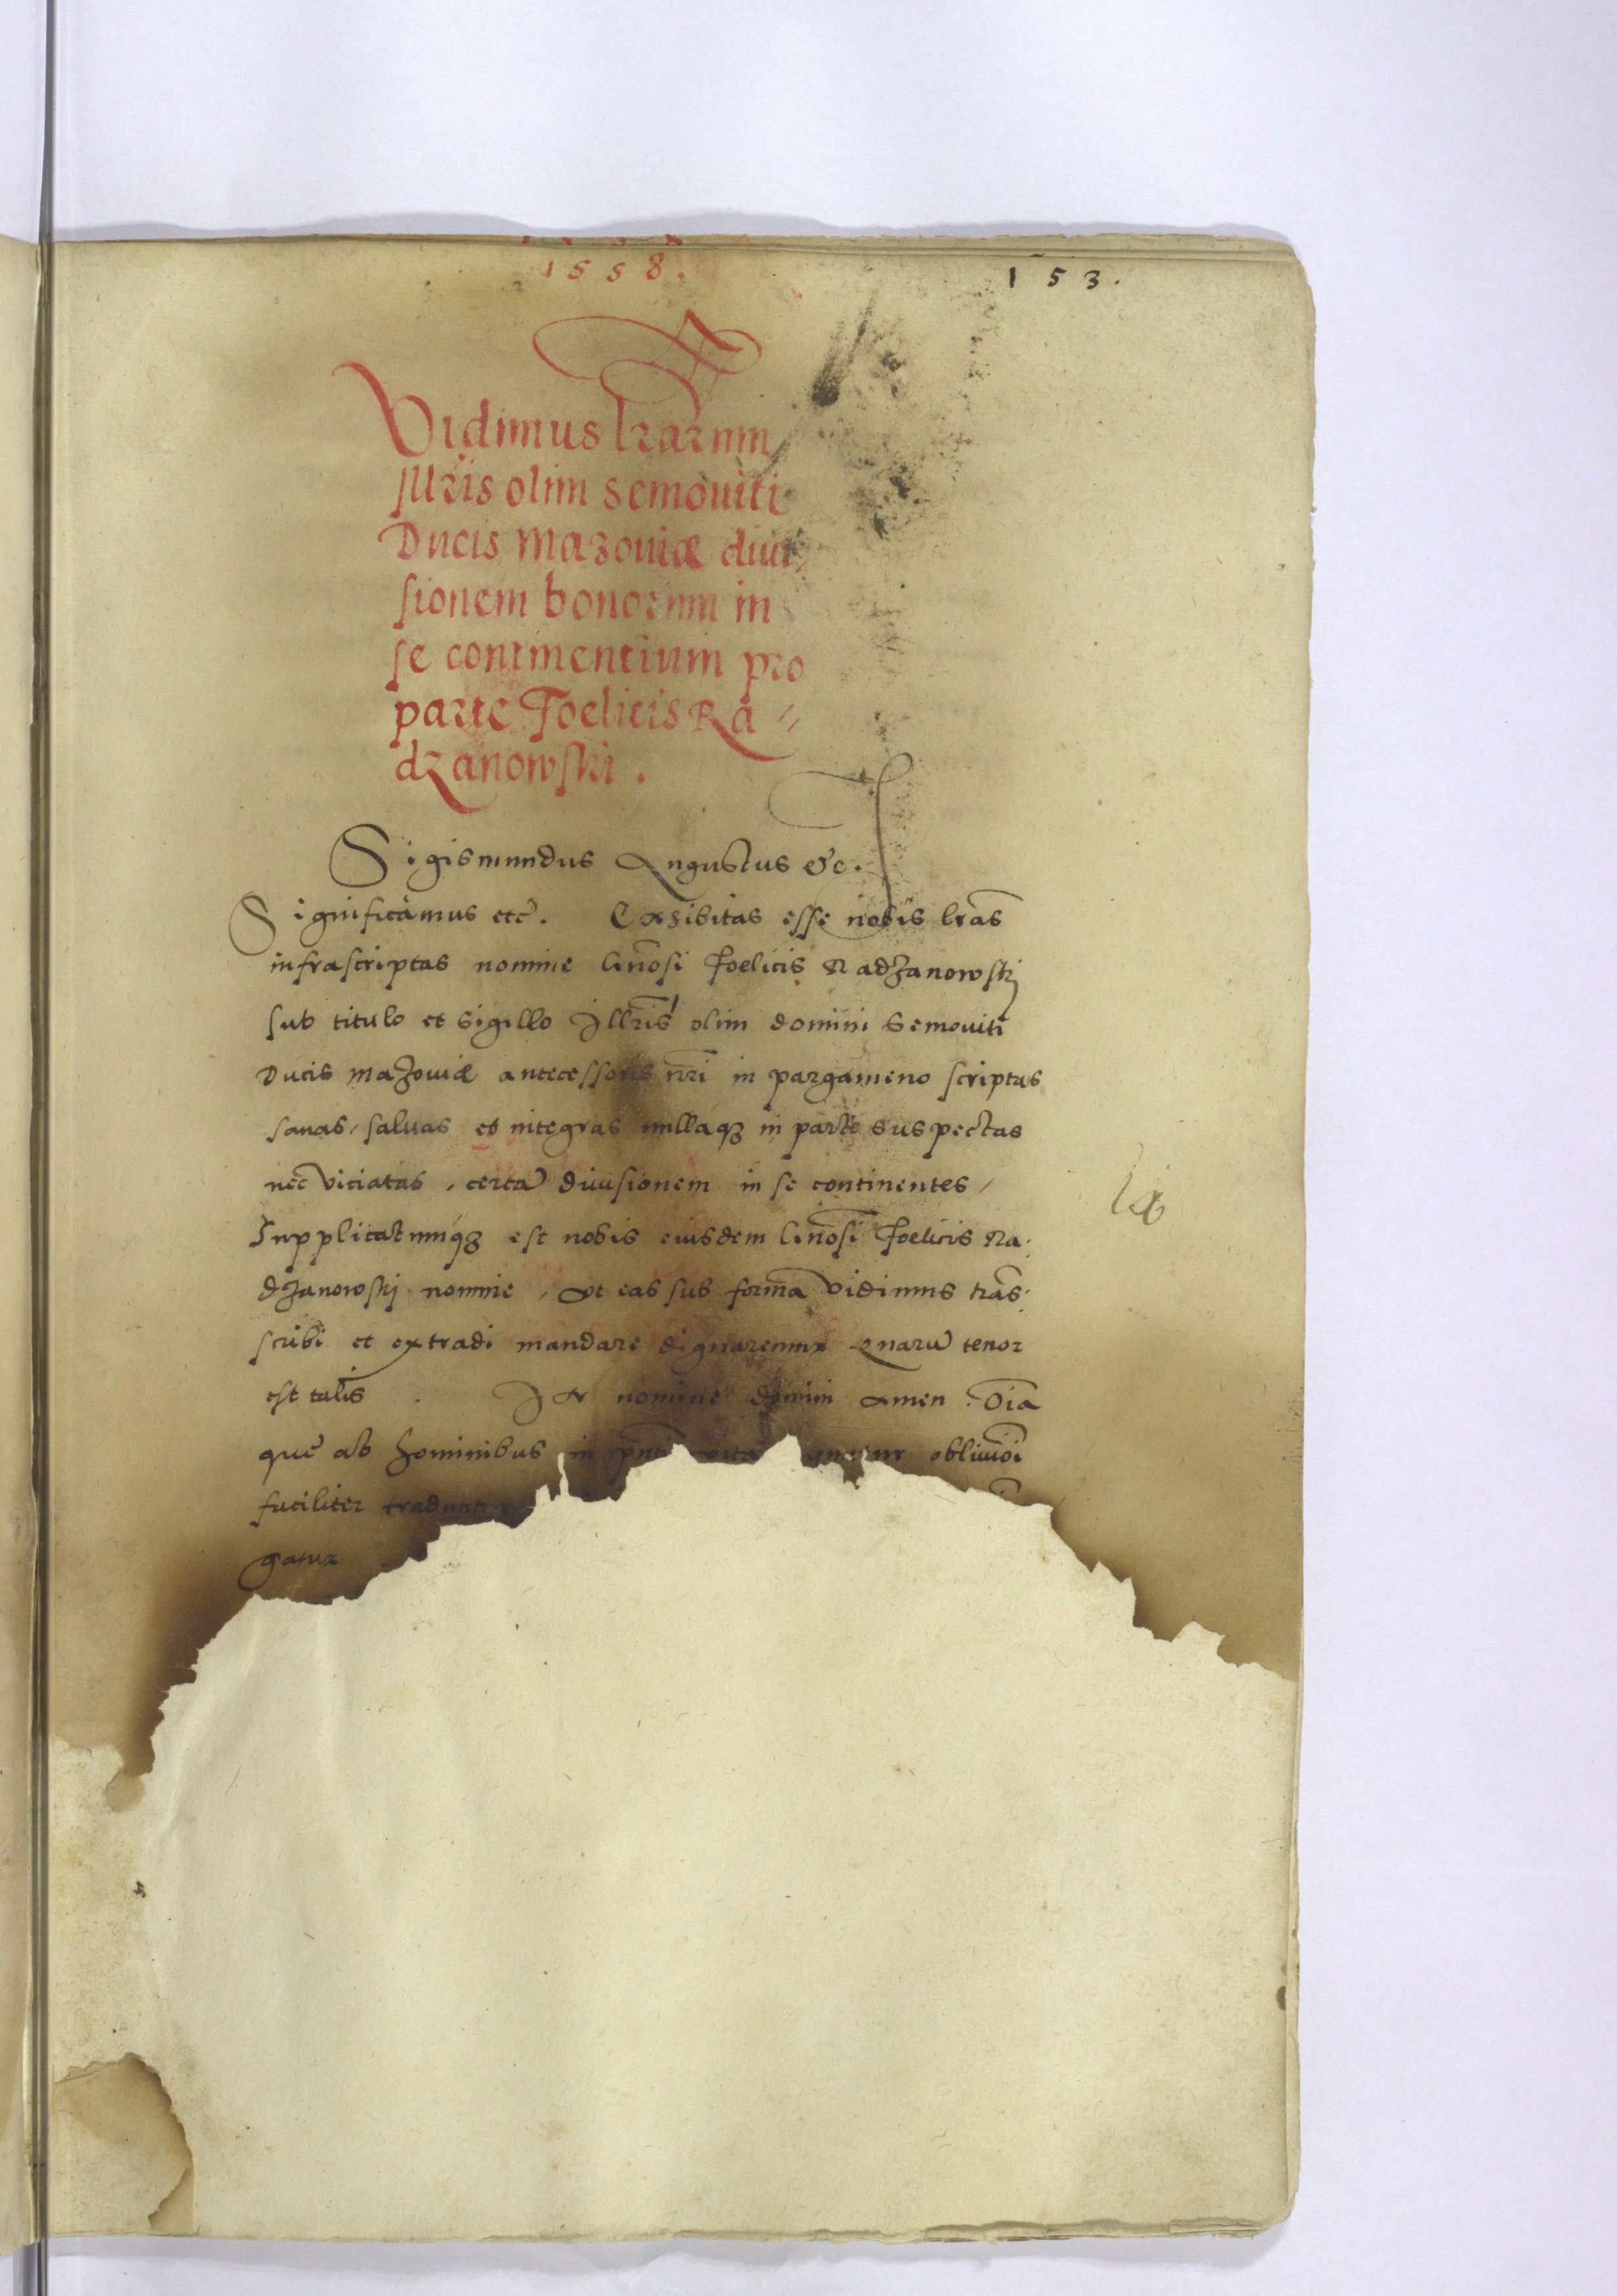 1558.
153.
Vidimus lrarum
Illris olim Semouiti
Ducis Mazouiæ diui
sionem bonorum in
se continentium pro
parte Foelicis Ra〃
dzanowski.
Sigismundus Augustus &c.
Significamus etc. Exhibitas esse nobis lras
infrascriptas nomine Gnosi Foelicis Radzanowskj
sub titulo et sigillo Illris olim domini Semouiti
Ducis Mazouiæ antecessoris nri in pargameno scriptas
sanas, saluas et integras nullaqꝫ in parte suspectas
nec viciatas, certā diuisionem in se continentes,
Supplicatumqꝫ est nobis eiusdem Gnosi Foelicis Ra:
dzanowskj nomine, vt eas sub forma vidimus tras:
scribi et extradi mandare dignaremur Quarū tenor
est talis. In nomine domini Amen. Oīa
que ab hominibus in pnti vita obliuioi
faciliter traduntur
gatur